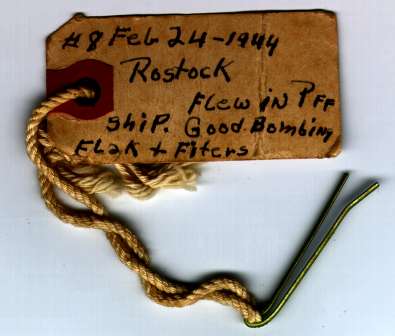 #8 Feb 24-1944
Rostock
Flew in Pff
Ship. Good Bombing
Flak + Fiters